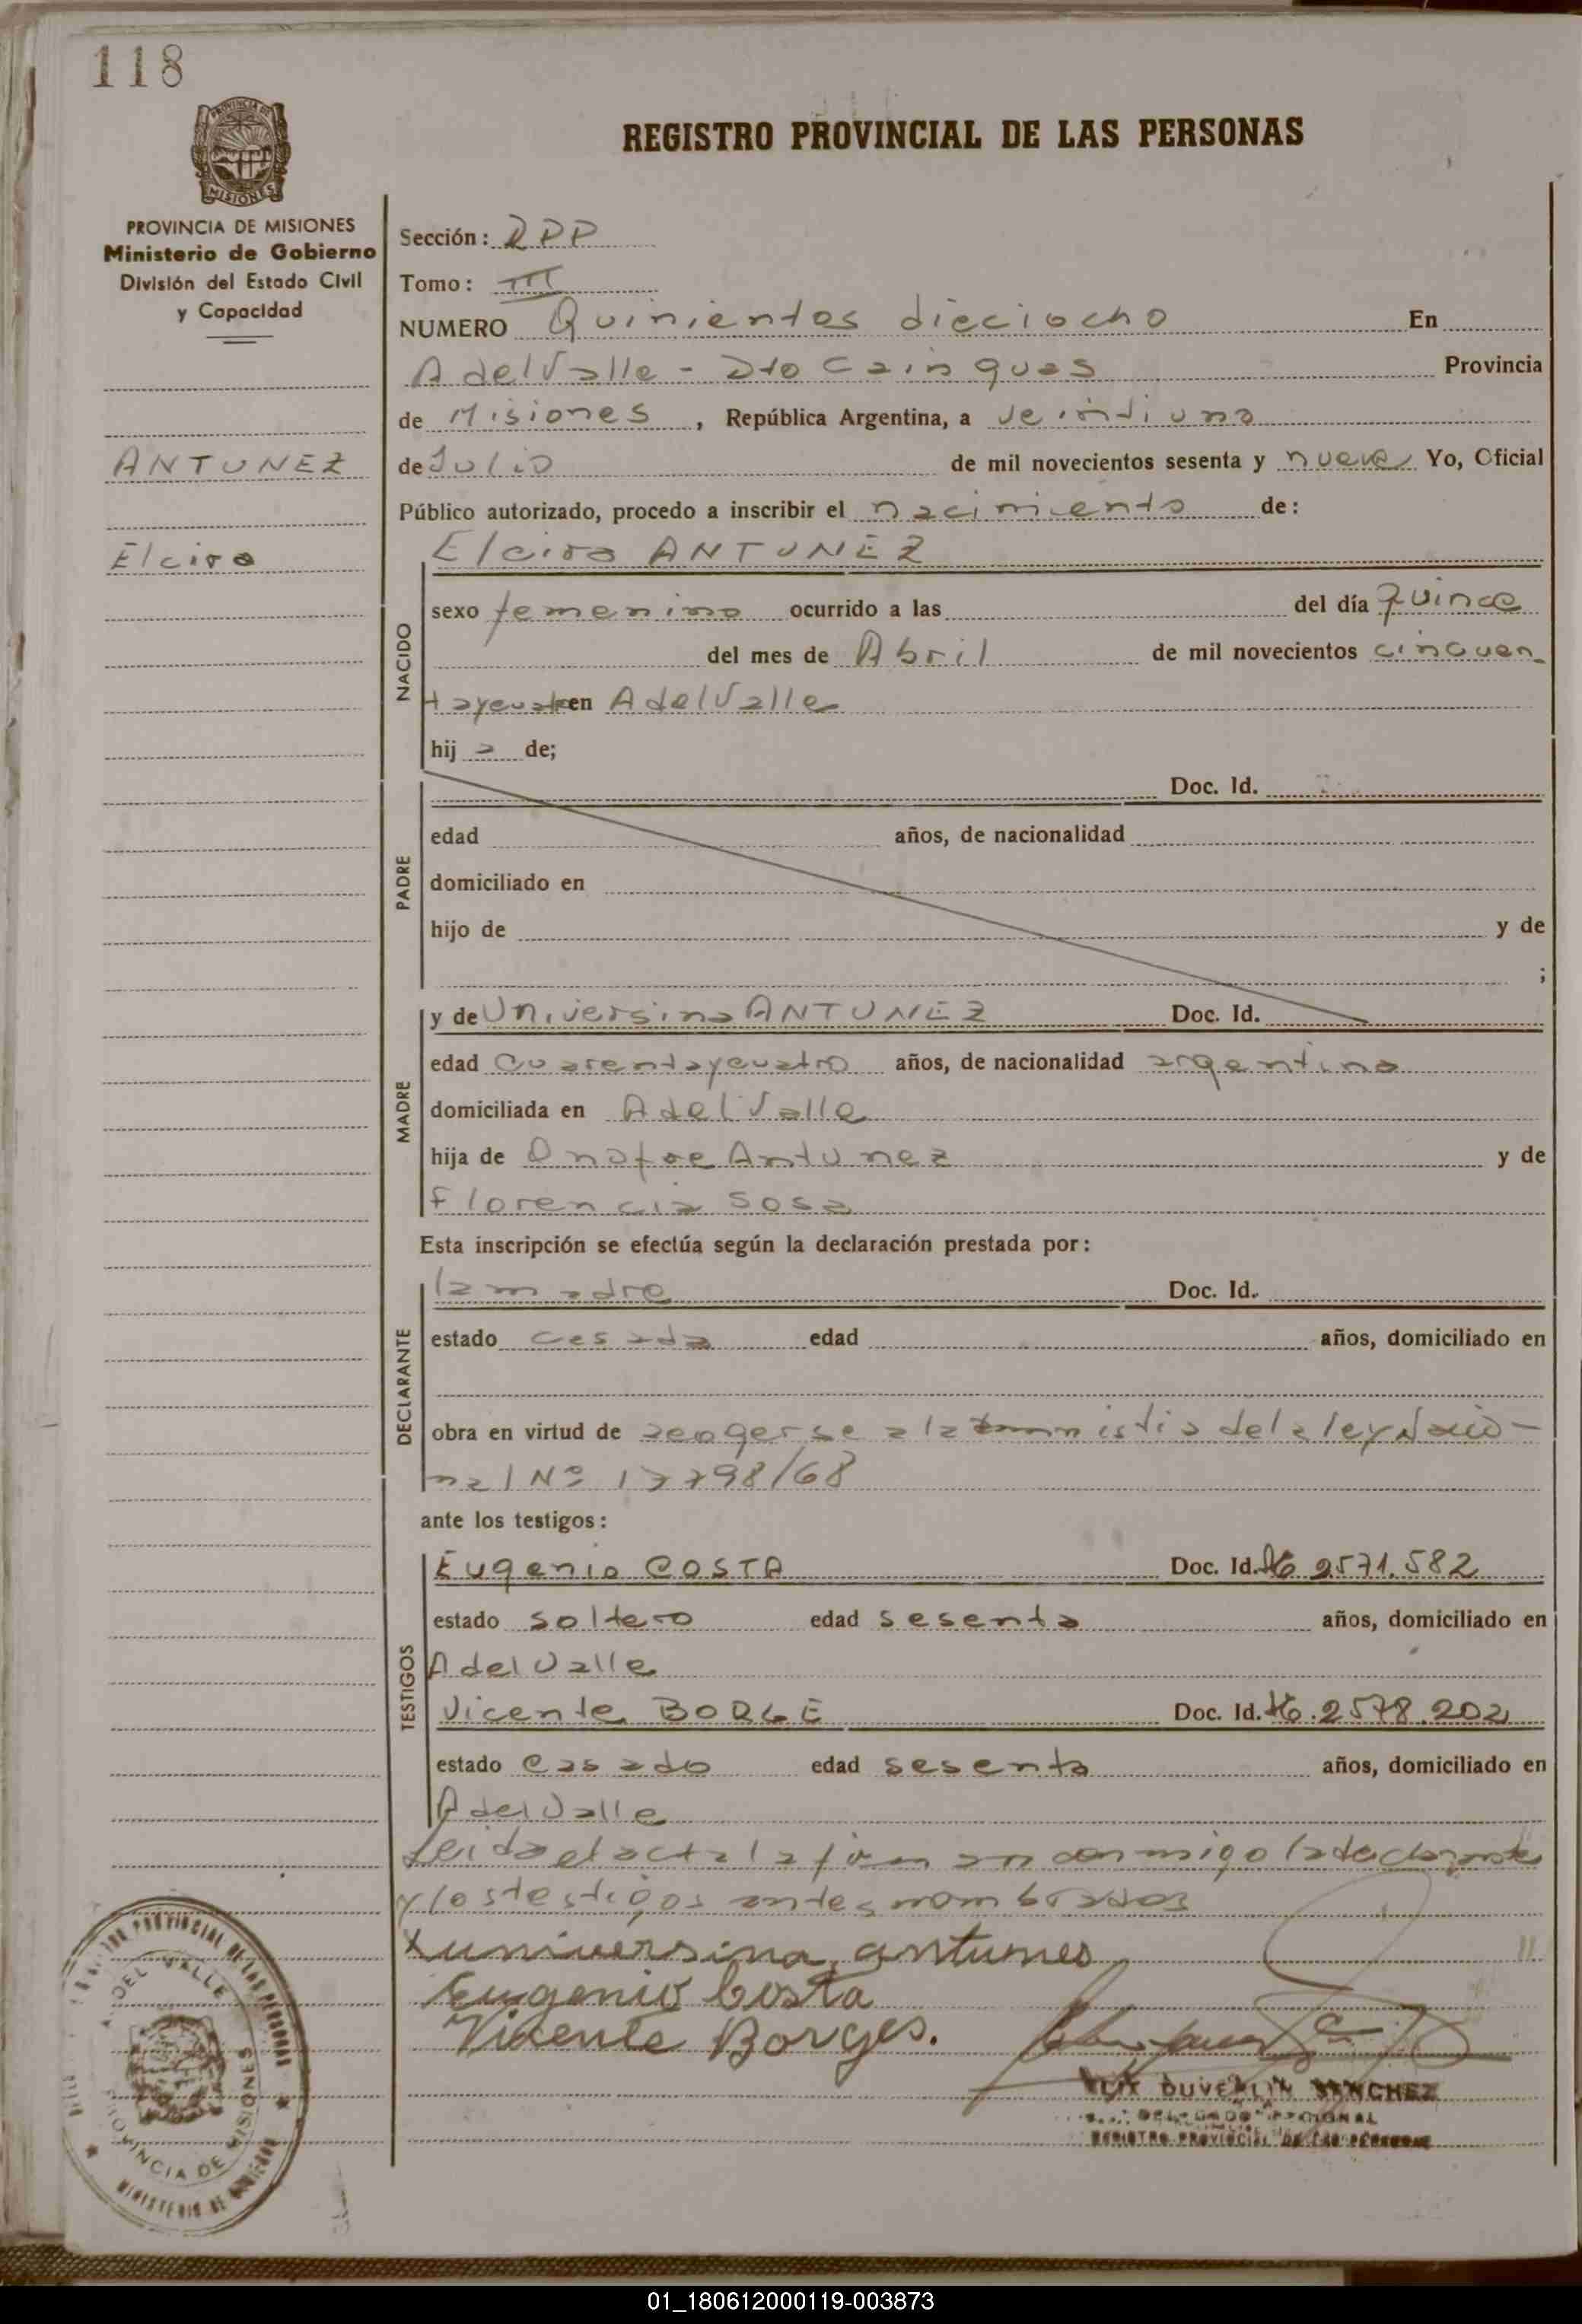 118
PROVINCIA DE MISIONES
REGISTRO PROVINCIAL DE LAS PERSONAS
PROVINCIA DE MISIONES
Ministerio de Gobierno
División del Estado Civil
y Capacidad
ANTUNEZ
Elcira
Sección: RPP
Tomo: III
NUMERO Quinientos dieciocho En
A del Valle - Dto Cainguas Provincia
de Misiones, República Argentina, a veintiuno
de Julio de mil novecientos sesenta y nueve Yo, Oficial
Público autorizado, procedo a inscribir el nacimiento de:
Elcira ANTUNEZ
NACIDO
sexo femenino ocurrido a las del día quince
del mes de Abril de mil novecientos cincuen
taycuatro en A del Valle
hij a de;
PADRE
Doc. Id.
edad años, de nacionalidad
domiciliado en
hijo de y de
;
MADRE
y de Universina ANTUNEZ Doc. Id.
edad cuarentaycuatro años, de nacionalidad argentina
domiciliada en A del Valle
hija de Onofre Antunez y de
Florencia Sosa
Esta inscripción se efectúa según la declaración prestada por:
DECLARANTE
la madre Doc. Id.
estado casada edad años, domiciliado en
obra en virtud de acogerse a la amnistia de la ley Nacio-
nal Nº 17798/68
ante los testigos:
TESTIGOS
Eugenio COSTA Doc. Id. 2571.582
estado soltero edad sesenta años, domiciliado en
A del Valle
Vicente BORGE Doc. Id. 2578.202
estado casado edad sesenta años, domiciliado en
A del Valle
Leida el acta la firman conmigo la declarante
y los testigos antes nombrados
X universina antunes
Eugenio Costa
Vicente Borges.
DUVERLIN SANCHEZ
DELEGADO REGIONAL
REGISTRO PROVINCIAL DE LAS PERSONAS
REGISTRO PROVINCIAL DE LAS PERSONAS
A. DEL VALLE
PROVINCIA DE MISIONES
MINISTERIO DE GOBIERNO
01_180612000119-003873